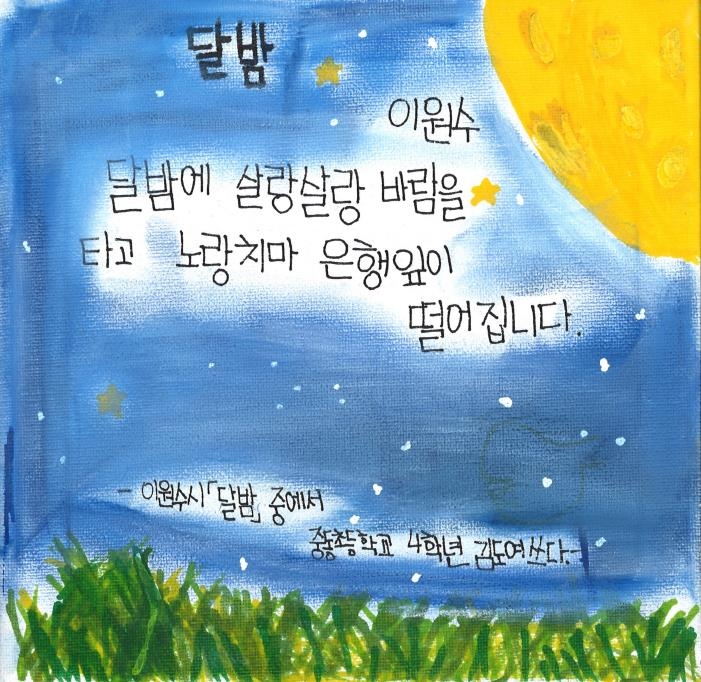 달밤
이원수
달밤에 살랑살랑 바람을
타고 노랑치마 은행잎이
떨어집니다.
- 이원수시「달밤」중에서
중동초등학교 4학년 김도연쓰다.-